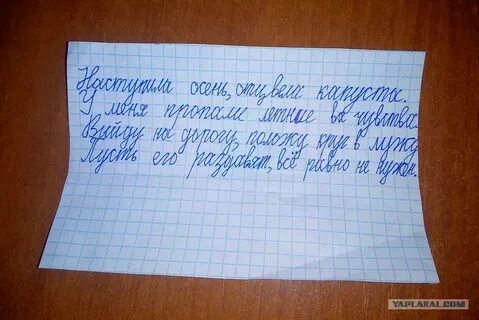 Наступила осень, отцвела капуста.
У меня пропали летние чувства.
Выйду на дорогу, положу круг в лужу
Пусть его раздавят, всё равно не нужен.
YAPLAKAL.COM